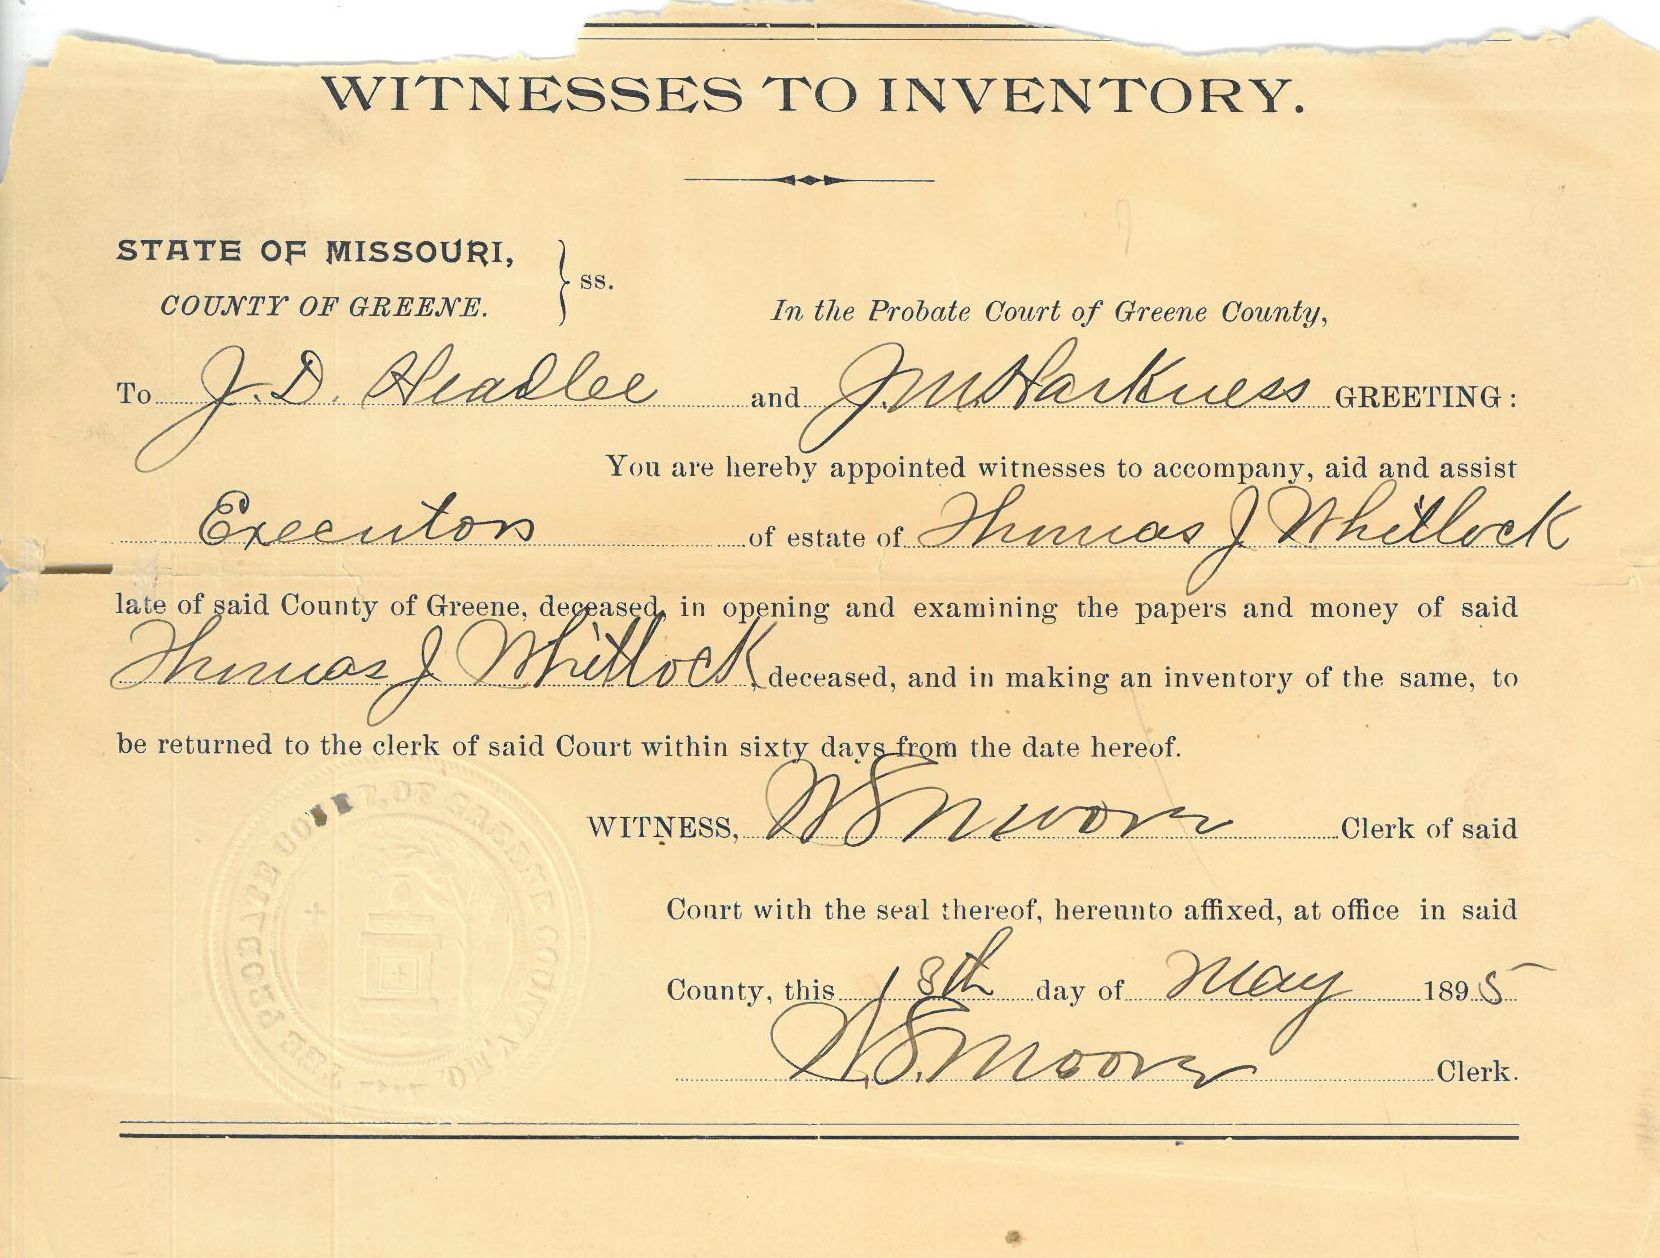 WITNESSES TO INVENTORY.
STATE OF MISSOURI,
COUNTY OF GREENE.
} ss.
In the Probate Court of Greene County,
To J. D. Headlee and J. M. Harkness GREETING:
You are hereby appointed witnesses to accompany, aid and assist
Executors of estate of Thomas J Whitlock
late of said County of Greene, deceased, in opening and examining the papers and money of said
Thomas J Whitlock deceased, and in making an inventory of the same, to
be returned to the clerk of said Court within sixty days from the date hereof.
WITNESS, W S Moore Clerk of said
Court with the seal thereof, hereunto affixed, at office in said
County, this 18th day of May 1895
W. S. Moore Clerk.
THE PROBATE COURT, OF GREENE COUNTY, MO.